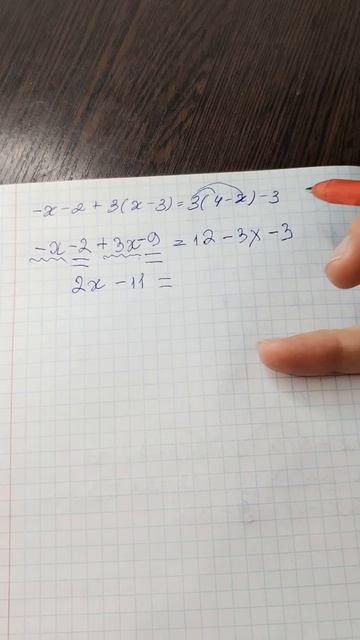 -x-2+3(x-3)=3(4-x)-3
-x-2+3x-9=12-3x-3
2x-11=